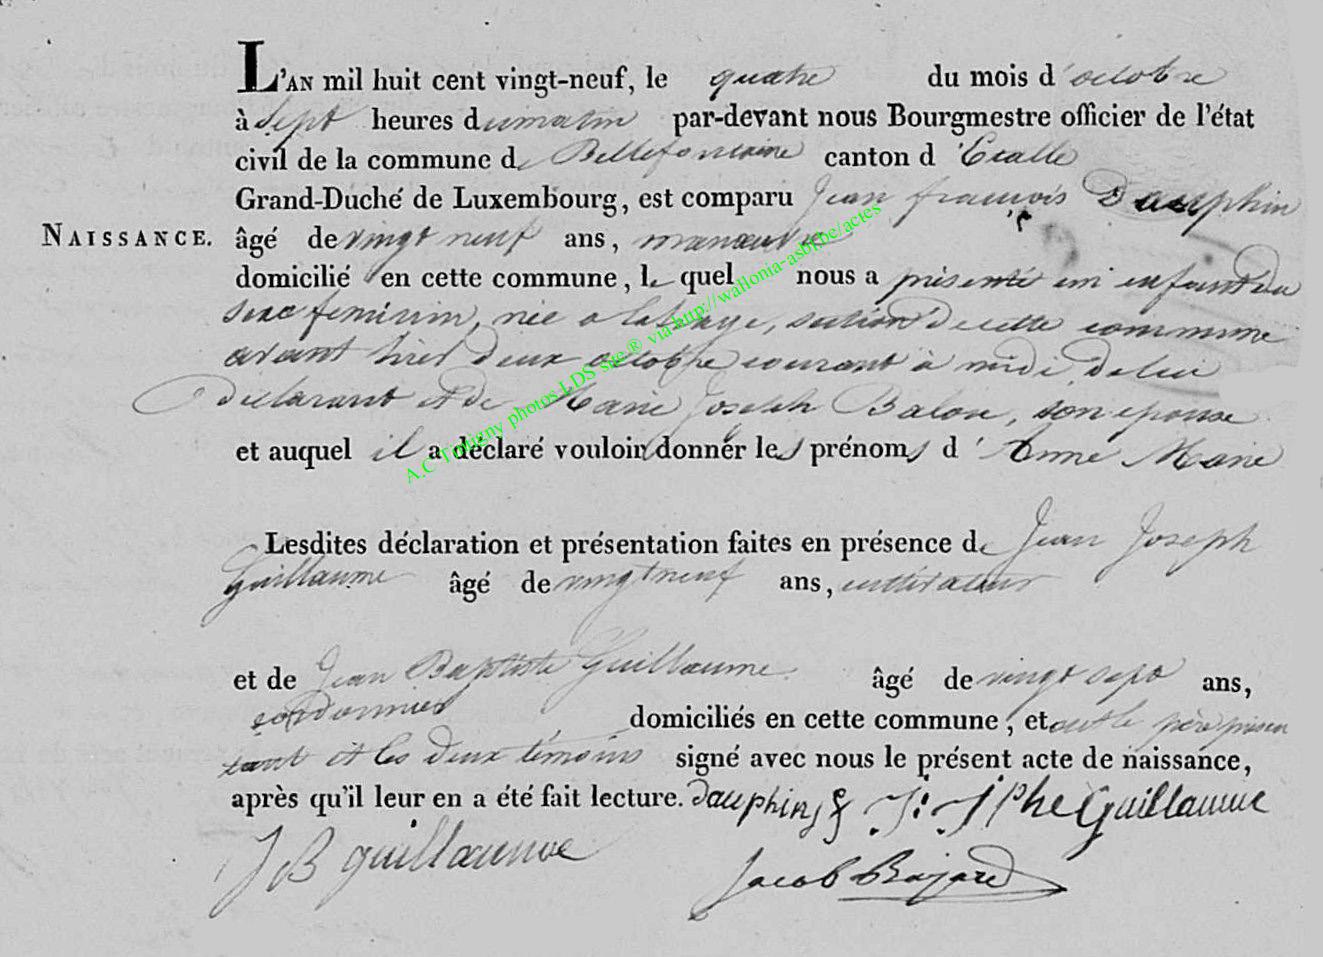 L'AN mil huit cent vingt-neuf, le quatre du mois d'octobre
à sept heures du matin par-devant nous Bourgmestre officier de l'état
civil de la commune de Bellefontaine canton d'Etalle
Grand-Duché de Luxembourg, est comparu Jean françois Dauphin
NAISSANCE. âgé de vingt neuf ans, manœuvre
domicilié en cette commune, le quel nous a présenté un enfant du
sexe feminin, née a lahage, section de cette commune
avant hier deux octobre courant à midi, de lui
déclarant et de Marie Joseph Balon, son epouse
et auquel il a déclaré vouloir donner les prénoms d'Anne Marie
Lesdites déclaration et présentation faites en présence de Jean Joseph
Guillaume âgé de vingt neuf ans, cultivateur
et de Jean Baptiste Guillaume âgé de vingt sept ans,
cordonnier domiciliés en cette commune, et ont le père présen
tant et les deux témoins signé avec nous le présent acte de naissance,
après qu'il leur en a été fait lecture. Dauphin J: Jphe Guillaume
J B guillaume
Jacob Bajard
A.C Tintigny photos LDS site ® via http://wallonia-asbl.be/actes